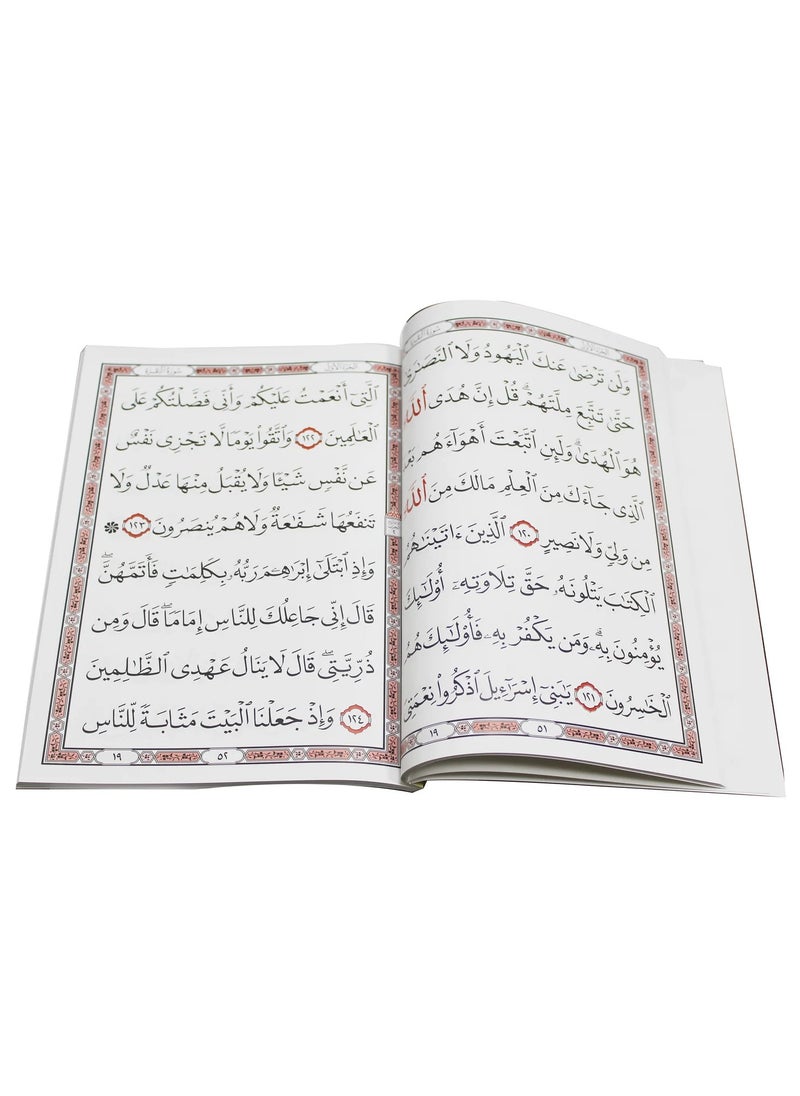 الجزء الأول سورة البقرة
وَلَن تَرْضَىٰ عَنكَ ٱلْيَهُودُ وَلَا ٱلنَّصَٰرَىٰ
حَتَّىٰ تَتَّبِعَ مِلَّتَهُمْ ۗ قُلْ إِنَّ هُدَى ٱللَّهِ
هُوَ ٱلْهُدَىٰ ۗ وَلَئِنِ ٱتَّبَعْتَ أَهْوَآءَهُم
ٱلَّذِى جَآءَكَ مِنَ ٱلْعِلْمِ مَالَكَ مِنَ ٱللَّهِ
مِن وَلِىٍّ وَلَا نَصِيرٍ ١٢٠ ٱلَّذِينَ ءَاتَيْنَٰهُمُ
ٱلْكِتَٰبَ يَتْلُونَهُۥ حَقَّ تِلَاوَتِهِۦٓ أُو۟لَٰٓئِكَ
يُؤْمِنُونَ بِهِۦ ۗ وَمَن يَكْفُرْ بِهِۦ فَأُو۟لَٰٓئِكَ هُمُ
ٱلْخَٰسِرُونَ ١٢١ يَٰبَنِىٓ إِسْرَٰٓءِيلَ ٱذْكُرُوا۟ نِعْمَتِىَ
٥١ ١٩
الجزء الأول سورة البقرة
ٱلَّتِىٓ أَنْعَمْتُ عَلَيْكُمْ وَأَنِّى فَضَّلْتُكُمْ عَلَى
ٱلْعَٰلَمِينَ ١٢٢ وَٱتَّقُوا۟ يَوْمًا لَّا تَجْزِى نَفْسٌ
عَن نَّفْسٍ شَيْـًٔا وَلَا يُقْبَلُ مِنْهَا عَدْلٌ وَلَا
تَنفَعُهَا شَفَٰعَةٌ وَلَا هُمْ يُنصَرُونَ ١٢٣ ۞
وَإِذِ ٱبْتَلَىٰٓ إِبْرَٰهِـۧمَ رَبُّهُۥ بِكَلِمَٰتٍ فَأَتَمَّهُنَّ ۖ
قَالَ إِنِّى جَاعِلُكَ لِلنَّاسِ إِمَامًا ۖ قَالَ وَمِن
ذُرِّيَّتِى ۖ قَالَ لَا يَنَالُ عَهْدِى ٱلظَّٰلِمِينَ
١٢٤ وَإِذْ جَعَلْنَا ٱلْبَيْتَ مَثَابَةً لِّلنَّاسِ
٥٢ ١٩